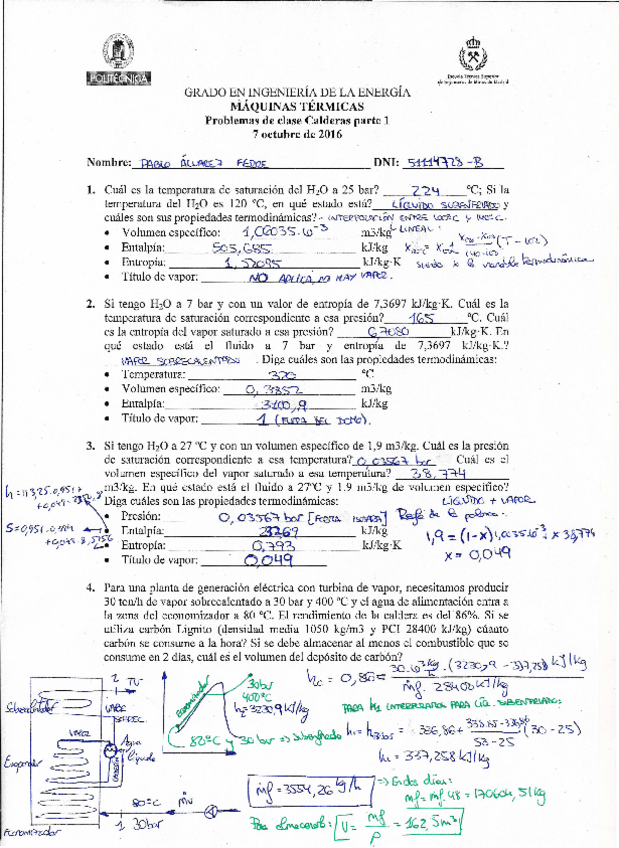 POLITÉCNICA
Escuela Técnica Superior
de Ingenieros de Minas de Madrid
GRADO EN INGENIERÍA DE LA ENERGÍA
MÁQUINAS TÉRMICAS
Problemas de clase Calderas parte 1
7 octubre de 2016
Nombre: PABLO ÁLVAREZ DNI: 51114728-B
1. Cuál es la temperatura de saturación del H2O a 25 bar? 224 ºC; Si la
temperatura del H2O es 120 ºC, en qué estado está? LÍQUIDO SUBENFRIADO y
cuáles son sus propiedades termodinámicas? - INTERPOLACIÓN ENTRE 100ºC Y 140ºC.
• Volumen específico: 1,06035·10⁻³ m3/kg - LINEAL:
• Entalpía: 505,685 kJ/kg
• Entropía: 1,52095 kJ/kg·K siendo x la variable termodinámica
• Título de vapor: NO APLICA, NO HAY VAPOR.
2. Si tengo H2O a 7 bar y con un valor de entropía de 7,3697 kJ/kg·K. Cuál es la
temperatura de saturación correspondiente a esa presión? 165 ºC. Cuál
es la entropía del vapor saturado a esa presión? 6,7080 kJ/kg·K. En
qué estado está el fluido a 7 bar y entropía de 7,3697 kJ/kg·K.?
VAPOR SOBRECALENTADO . Diga cuáles son las propiedades termodinámicas:
• Temperatura: 320 ºC
• Volumen específico: 0,3852 m3/kg
• Entalpía: 3100,9 kJ/kg
• Título de vapor: 1 (FUERA DEL DOMO).
3. Si tengo H2O a 27 ºC y con un volumen específico de 1,9 m3/kg. Cuál es la presión
de saturación correspondiente a esa temperatura? 0,03567 bar Cuál es el
volumen específico del vapor saturado a esa temperatura? 38,774
m3/kg. En qué estado está el fluido a 27ºC y 1.9 m3/kg de volumen específico?
Diga cuáles son las propiedades termodinámicas: LÍQUIDO + VAPOR
• Presión: 0,03567 bar
• Entalpía: kJ/kg
• Entropía: 0,793 kJ/kg·K
• Título de vapor: 0,049
1,9 = (1-x) 1,0035·10⁻³ + x 38,774
x = 0,049
4. Para una planta de generación eléctrica con turbina de vapor, necesitamos producir
30 ton/h de vapor sobrecalentado a 30 bar y 400 ºC y el agua de alimentación entra a
la zona del economizador a 80 ºC. El rendimiento de la caldera es del 86%. Si se
utiliza carbón Lignito (densidad media 1050 kg/m3 y PCI 28400 kJ/kg) cuánto
carbón se consume a la hora? Si se debe almacenar al menos el combustible que se
consume en 2 días, cuál es el volumen del depósito de carbón?
2 TV
Sobrecalentador
VAPOR
SOBREC.
VAPOR
Agua
líquida
Evaporador
80ºC
ṁv
Economizador
1 30bar
30bar
400ºC
h₂=3230,9 kJ/kg
80ºC y 30 bar => Subenfriado
h₁ = 337,258 kJ/kg
ṁf = 3554,26 kg/h
=> En dos días:
mf = ṁf·48 = 170604,5 kg
Para almacenarlo: V = mf/ρ = 162,5 m³